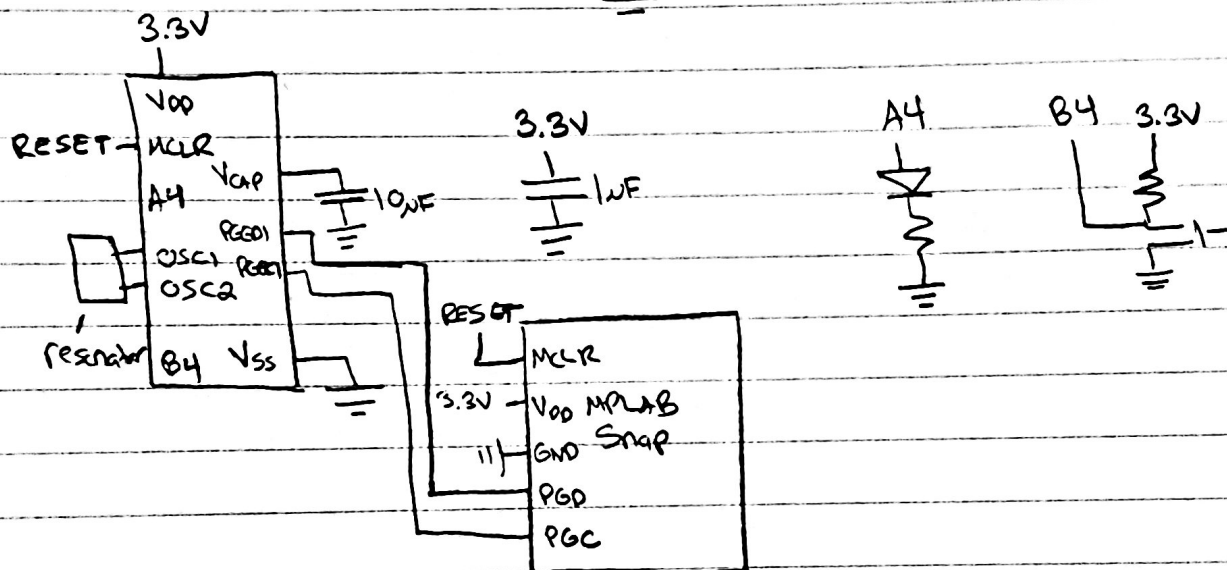 3.3V
VDD
RESET
MCLR
VCAP
10uF
A4
PGED1
OSC1
PGEC1
OSC2
resonator
B4
VSS
3.3V
1uF
A4
B4
3.3V
RESET
MCLR
3.3V
VDD
MPLAB
Snap
GND
PGD
PGC